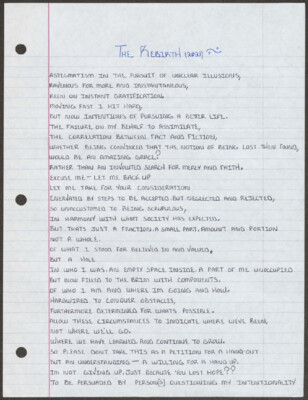 THE REBIRTH
IN THE PURSUIT OF UNCLEAR ILLUSIONS,
RAVENOUS FOR MORE AND INSTANTANEOUS,
ON INSTANT GRATIFICATION.
MOVING FAST I HIT HARD,
BUT NOW INTENTIONS OF PURSUING A BETTER LIFE.
THE FAILURE ON MY BEHALF TO ASSIMILATE,
THE CORRELATION BETWEEN FACT AND FICTION,
WHETHER BEING CONSIDERED THAT THE NOTION OF BEING LOST THUS FOUND,
WOULD BE AN AMAZING GRACE?
RATHER THAN AN UNWANTED SEARCH FOR MERCY AND FAITH.
EXCUSE ME - LET ME BACK UP
LET ME TAKE FOR YOUR CONSIDERATION
BY STEPS TO BE ACCEPTED BUT NEGLECTED AND REJECTED,
SO UNACCUSTOMED TO BEING
IN HARMONY WITH WHAT SOCIETY HAS EXPECTED.
BUT THATS JUST A FRACTION A SMALL PART, AMOUNT AND PORTION
NOT A WHOLE.
OF WHAT I STAND FOR BELIEVED IN AND VALUED,
BUT A HOLE
IN WHO I WAS. AN EMPTY SPACE INSIDE A PART OF ME UNOCCUPIED
BUT NOW FILLED TO THE BRIM WITH COMPONENTS.
OF WHO I AM AND WHERE IM GOING AND HOW.
HARDWIRED TO CONQUER OBSTACLES,
FURTHERMORE DETERMINED FOR WHATS POSSIBLE.
ALLOW THESE CIRCUMSTANCES TO INDICATE WHERE WEVE BEEN
NOT WHERE WE'LL GO.
WHERE WE HAVE LEARNED AND CONTINUE TO GROW.
SO PLEASE DONT TAKE THIS AS A PETITION FOR A HAND-OUT
BUT AN UNDERSTANDING - A WILLING FOR A HAND-UP.
IM NOT GIVING UP. JUST BECAUSE YOU LOST HOPE??
TO BE PERSUADED BY PERSON(S) QUESTIONING MY INTENTIONALITY